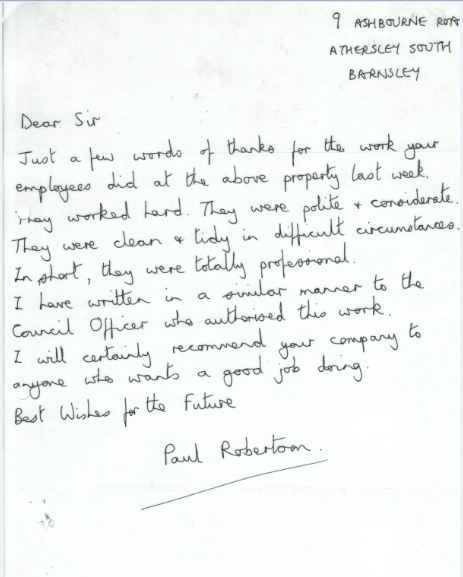 9 ASHBOURNE ROA
ATHERSLEY SOUTH
BARNSLEY
Dear Sir
Just a few words of thanks for the work your
employees did at the above property last week.
They worked hard. They were polite + considerate.
They were clean + tidy in difficult circumstances.
In short, they were totally professional.
I have written in a similar manner to the
Council Officer who authorised this work.
I will certainly recommend your company to
anyone who wants a good job doing.
Best Wishes for the Future
Paul Robertson.